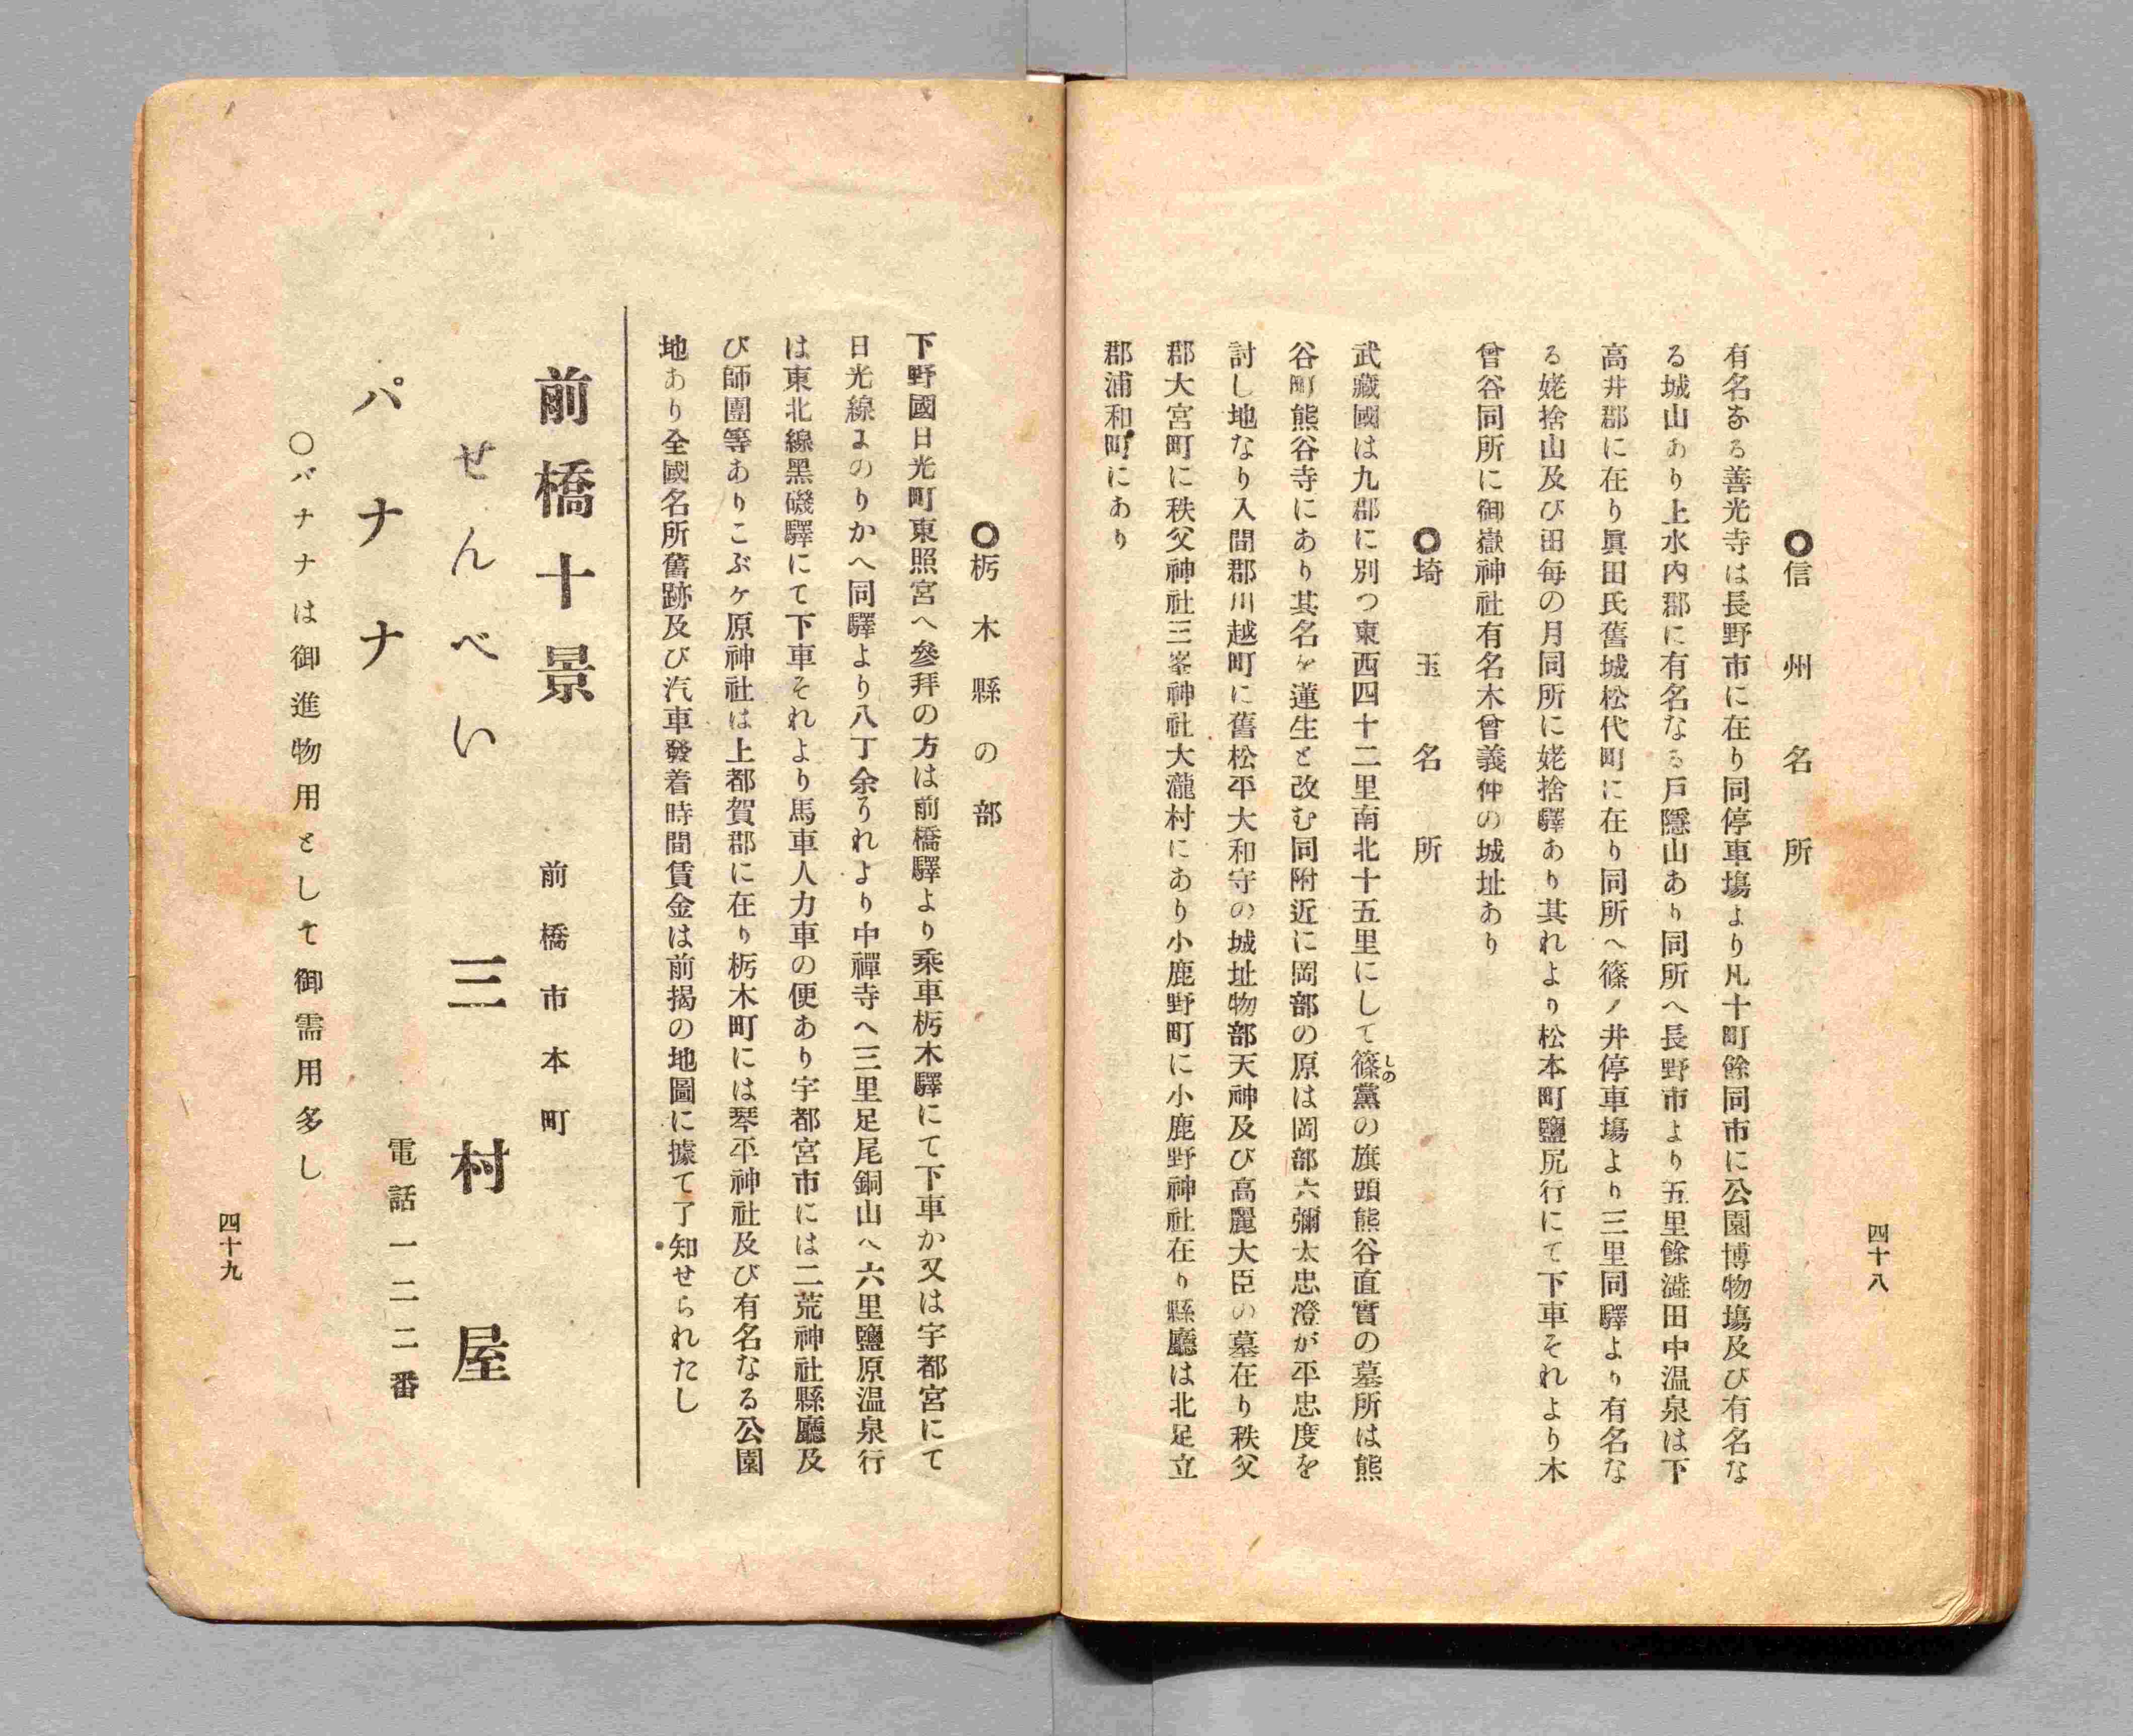 四十八
◯信州名所
有名なる善光寺は長野市に在り同停車塲より凡十町餘同市に公園博物塲及び有名な
る城山あり上水内郡に有名なる戸隱山あり同所へ長野市より五里餘澁田中温泉は下
高井郡に在り眞田氏舊城松代町に在り同所へ篠ノ井停車塲より三里同驛より有名な
る姥捨山及び田毎の月同所に姥捨驛あり其れより松本町鹽尻行にて下車それより木
曾谷同所に御嶽神社有名木曾義仲の城址あり
◯埼玉名所
武藏國は九郡に別つ東西四十二里南北十五里にして篠黨の旗頭熊谷直實の墓所は熊
しの
谷町熊谷寺にあり其名を蓮生と改む同附近に岡部の原は岡部六彌太忠澄が平忠度を
討し地なり入間郡川越町に舊松平大和守の城址物部天神及び高麗大臣の墓在り秩父
郡大宮町に秩父神社三峯神社大瀧村にあり小鹿野町に小鹿野神社在り縣廳は北足立
郡浦和町にあり
◯栃木縣の部
下野國日光町東照宮へ參拜の方は前橋驛より乘車栃木驛にて下車か又は宇都宮にて
日光線よのりかへ同驛より八丁余それより中禪寺へ三里足尾銅山へ六里鹽原温泉行
は東北線黑磯驛にて下車それより馬車人力車の便あり宇都宮市には二荒神社縣廳及
び師團等ありこぶヶ原神社は上都賀郡に在り栃木町には琴平神社及び有名なる公園
地あり全國名所舊跡及び汽車發着時間賃金は前揭の地圖に據て了知せられたし
前橋十景
前橋市本町
せんべい 三村屋
電話一二二番
パナナ
〇バナナは御進物用として御需用多し
四十九